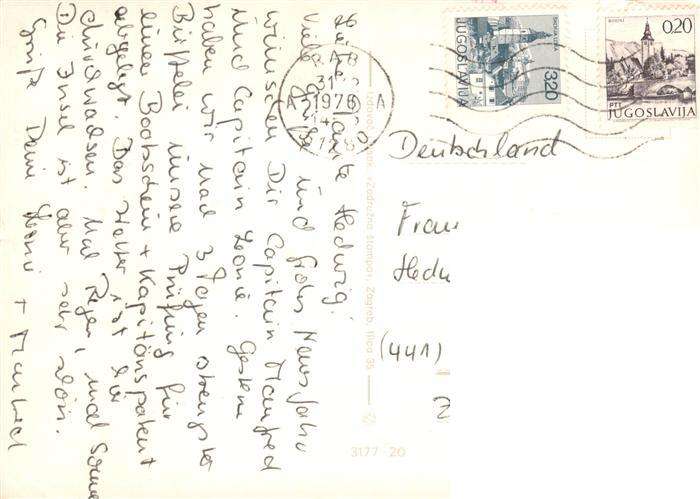 Liebe Tante Hedwig!
Viele Grüße und frohes Neues Jahr
wünschen Dir Capitain Manfred
und Capitain Leonie. Gestern
haben wir nach 3 Tagen strengster
Büffelei unsere Prüfung für
einen Bootsschein + Kapitänspatent
abgelegt. Das Wetter ist hier
durchwachsen. Mal Regen, mal Sonne
Die Insel ist aber sehr schön.
Grüße Deine Leonie + Manfred
31
1978
A A
JUGOSLAVIJA
3.20
BOHINJ
0,20
PTT
JUGOSLAVIJA
Deutschland
Frau
Hedw
(441)
Izdavač »Zadružna štampa«, Zagreb, Ilica 35
3177 20